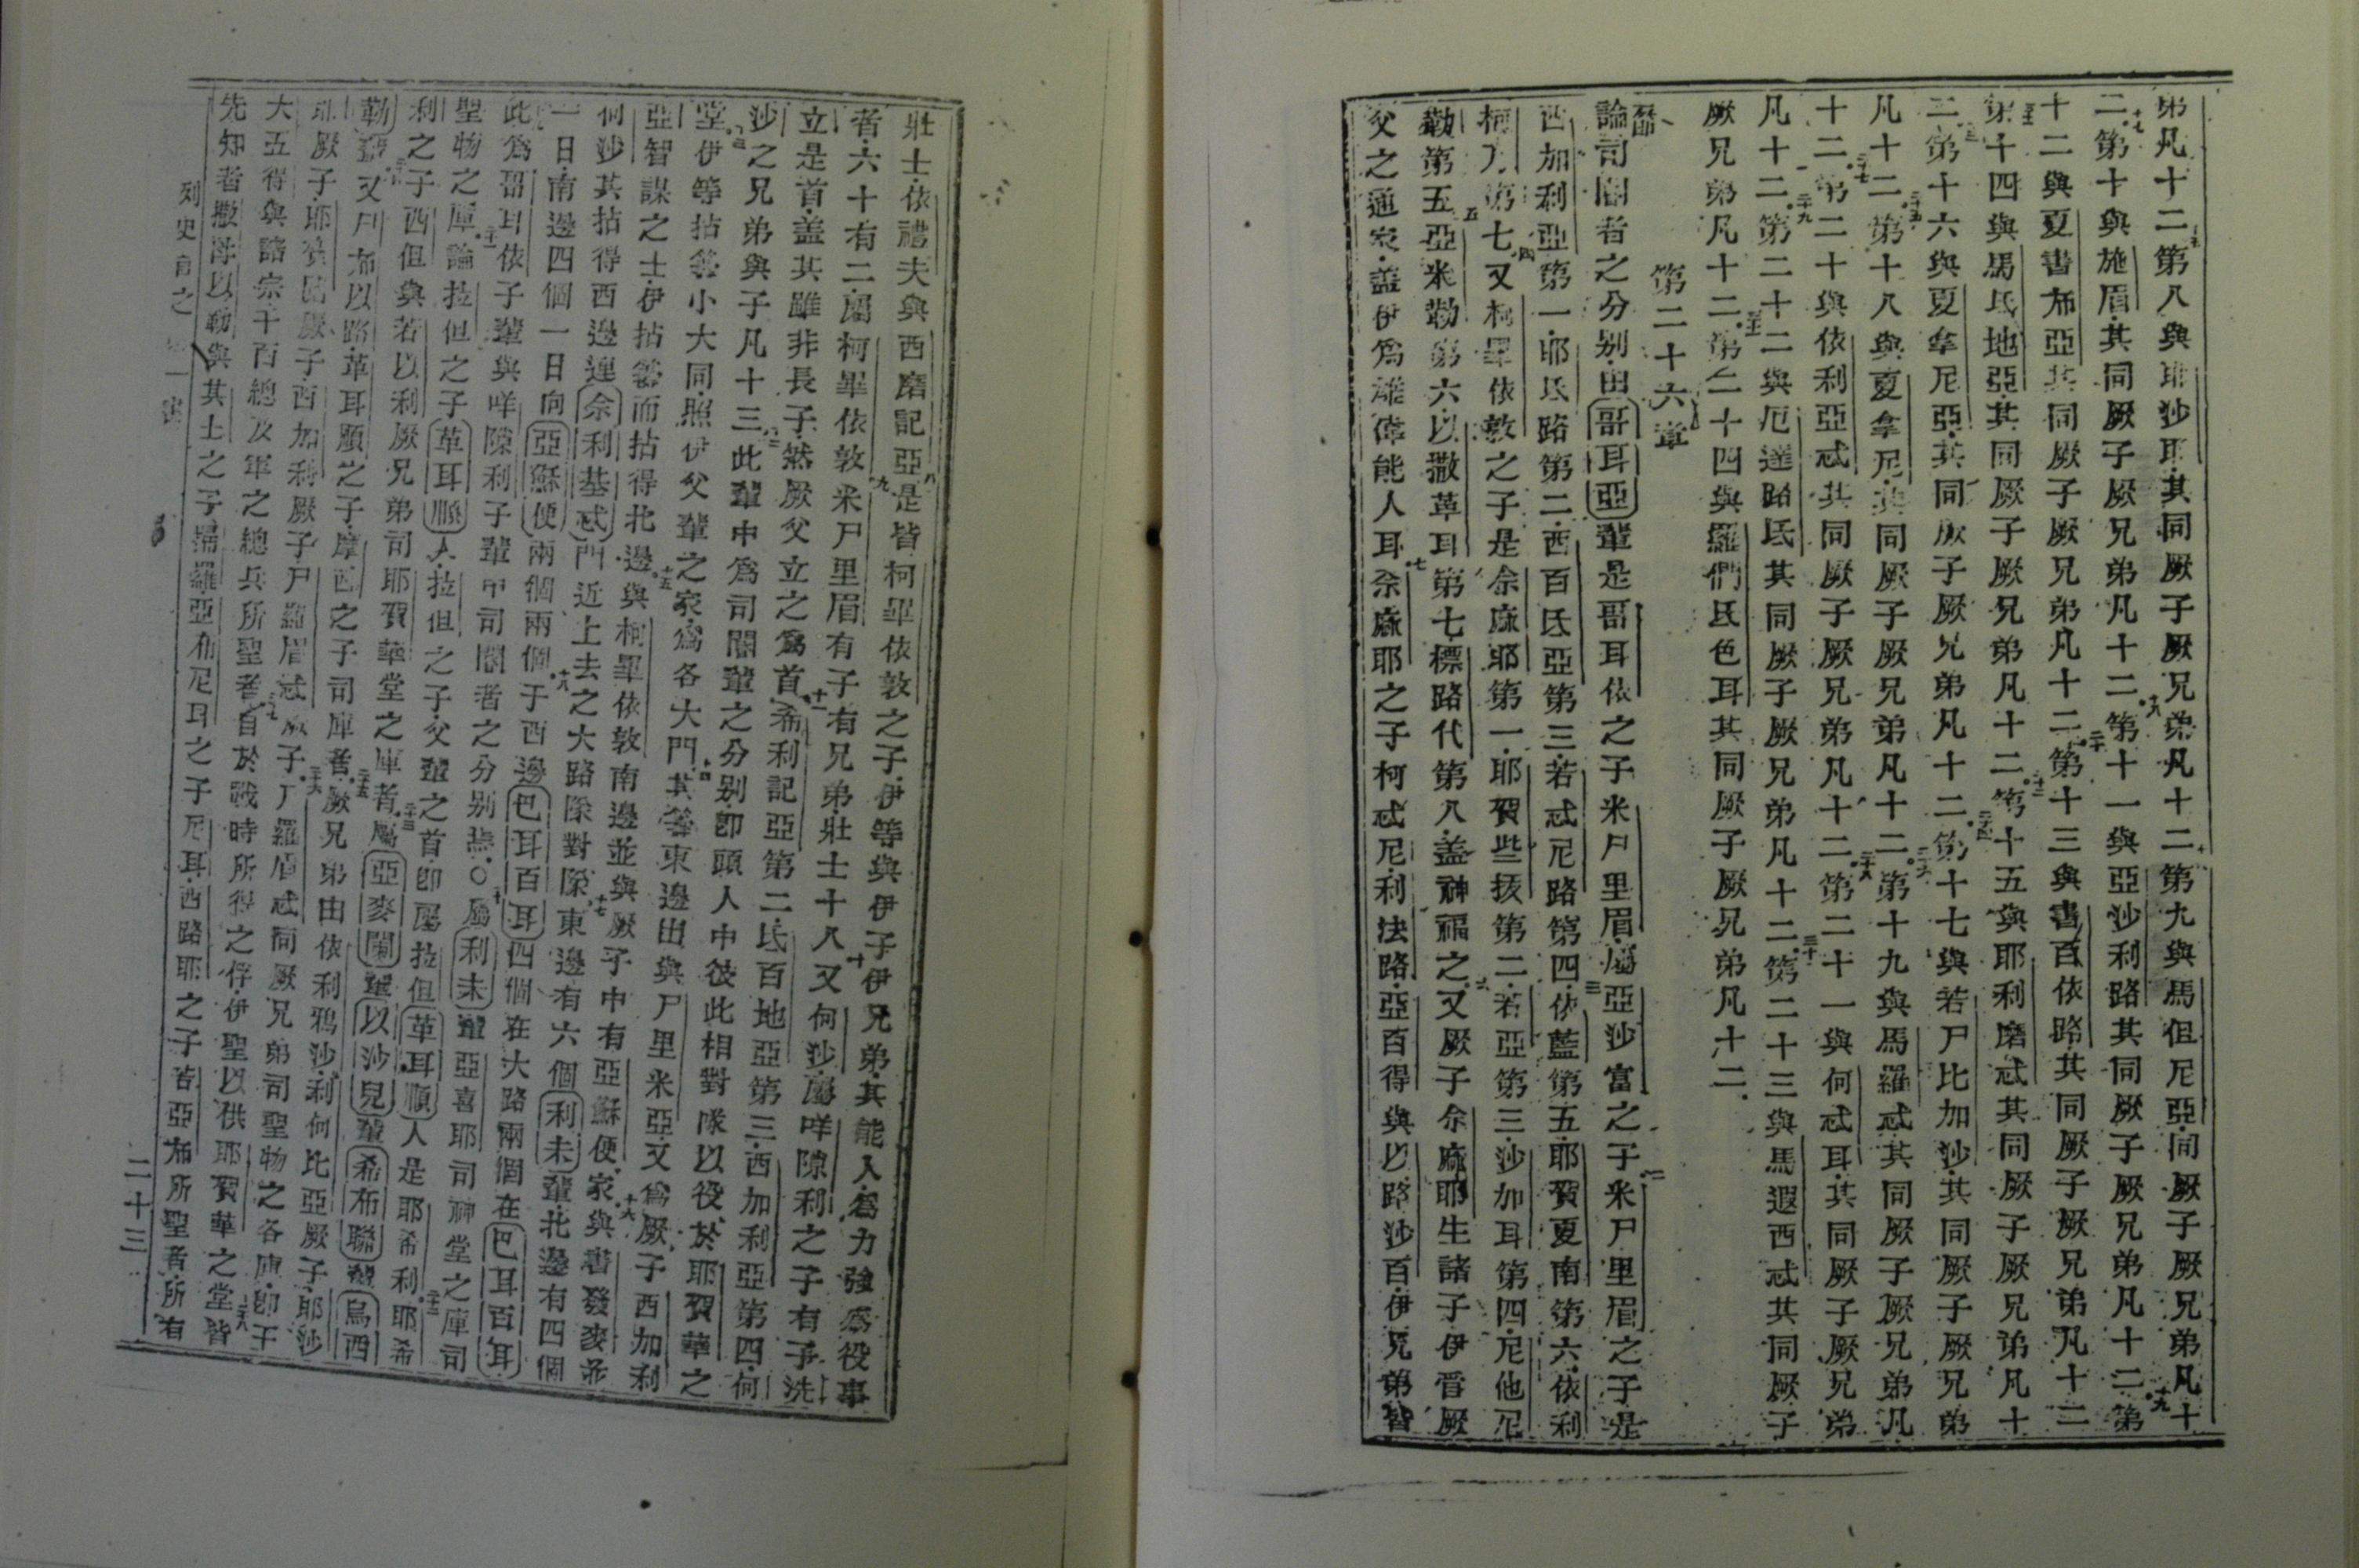 弟凡十二第八與耶沙耶其同厥子厥兄弟凡十二第九與馬但尼亞同厥子厥兄弟凡十
二第十與施眉其同厥子厥兄弟凡十二第十一與亞沙利路其同厥子厥兄弟凡十二第
十二與夏書布亞其同厥子厥兄弟凡十二第十三與書百依路其同厥子厥兄弟凡十二
第十四與馬氐地亞其同厥子厥兄弟凡十二第十五與耶利磨忒其同厥子厥兄弟凡十
二第十六與夏拿尼亞其同厥子厥兄弟凡十二第十七與若尸比加沙其同厥子厥兄弟
凡十二第十八與夏拿尼其同厥子厥兄弟凡十二第十九與馬羅忒其同厥子厥兄弟凡
十二第二十與依利亞忒其同厥子厥兄弟凡十二第二十一與何忒耳其同厥子厥兄弟
凡十二第二十二與厄達跆氐其同厥子厥兄弟凡十二第二十三與馬遐西忒其同厥子
厥兄弟凡十二第二十四與羅們氐色耳其同厥子厥兄弟凡十二
第二十六章
論司閽者之分別由哥耳亞輩是哥耳依之子米尸里眉屬亞沙富之子米尸里眉之子是
西加利亞第一耶氐路第二西百氐亞第三若忒尼路第四依藍第五耶賀夏南第六依利
柯乃第七又柯畢依敦之子是余麻耶第一耶賀些拔第二若亞第三沙加耳第四尼他尼
勒第五亞米勒第六以撒革耳第七標路代第八盖神福之又厥子余麻耶生諸子伊管厥
父之通家盖伊為雄偉能人耳余麻耶之子柯忒尼利法路亞百得與以路沙百伊兄弟皆
壯士依禮夫與西磨記亞是皆柯畢依敦之子伊等與伊子伊兄弟其能人為力強為役事
者六十有二屬柯畢依敦米尸里眉有子有兄弟壯士十八又何沙屬咩隙利之子有子洗
立是首盖其雖非長子然厥父立之為首希利記亞第二氐百地亞第三西加利亞第四何
沙之兄弟與子凡十三此輩中為司閽輩之分別卽頭人中彼此相對隊以役於耶賀華之
堂伊等拈䦰小大同照伊父輩之家為各大門其䦰東邊出與尸里米亞又為厥子西加利
亞智謀之士伊拈䦰而拈得北邊與柯畢依敦南邊並與厥子中有亞蘇便家與書發麥並
何沙其拈得西邊連余利基忒門近上去之大路隊對隊東邊有六個利未輩北邊有四個
一日南邊四個一日向亞蘇便兩個兩個于西邊巴耳百耳四個在大路兩個在巴耳百耳
此為哥耳依子輩與咩隙利子輩中司閽者之分別焉○屬利未輩亞喜耶司神堂之庫司
聖物之庫論拉但之子革耳順人拉但之子父輩之首卽屬拉但革耳順人是耶希利耶希
利之子西但與若以利厥兄弟司耶賀華堂之庫者屬亞麥闌輩以沙兒輩希布聯輩烏西
勒輩又尸布以路革耳順之子摩西之子司庫者厥兄弟由依利鴉沙利何比亞厥子耶沙
耶厥子耶賀臨厥子西加利厥子尸羅眉忒厥子尸羅眉忒同厥兄弟司聖物之各庫卽王
大五得與諸宗千百總及軍之總兵所聖者自於戰時所得之俘伊聖以供耶賀華之堂皆
先知者撒母以勒與其士之子掃羅亞布尼耳之子尼耳西路耶之子若亞布所聖者所有
列史
二十三